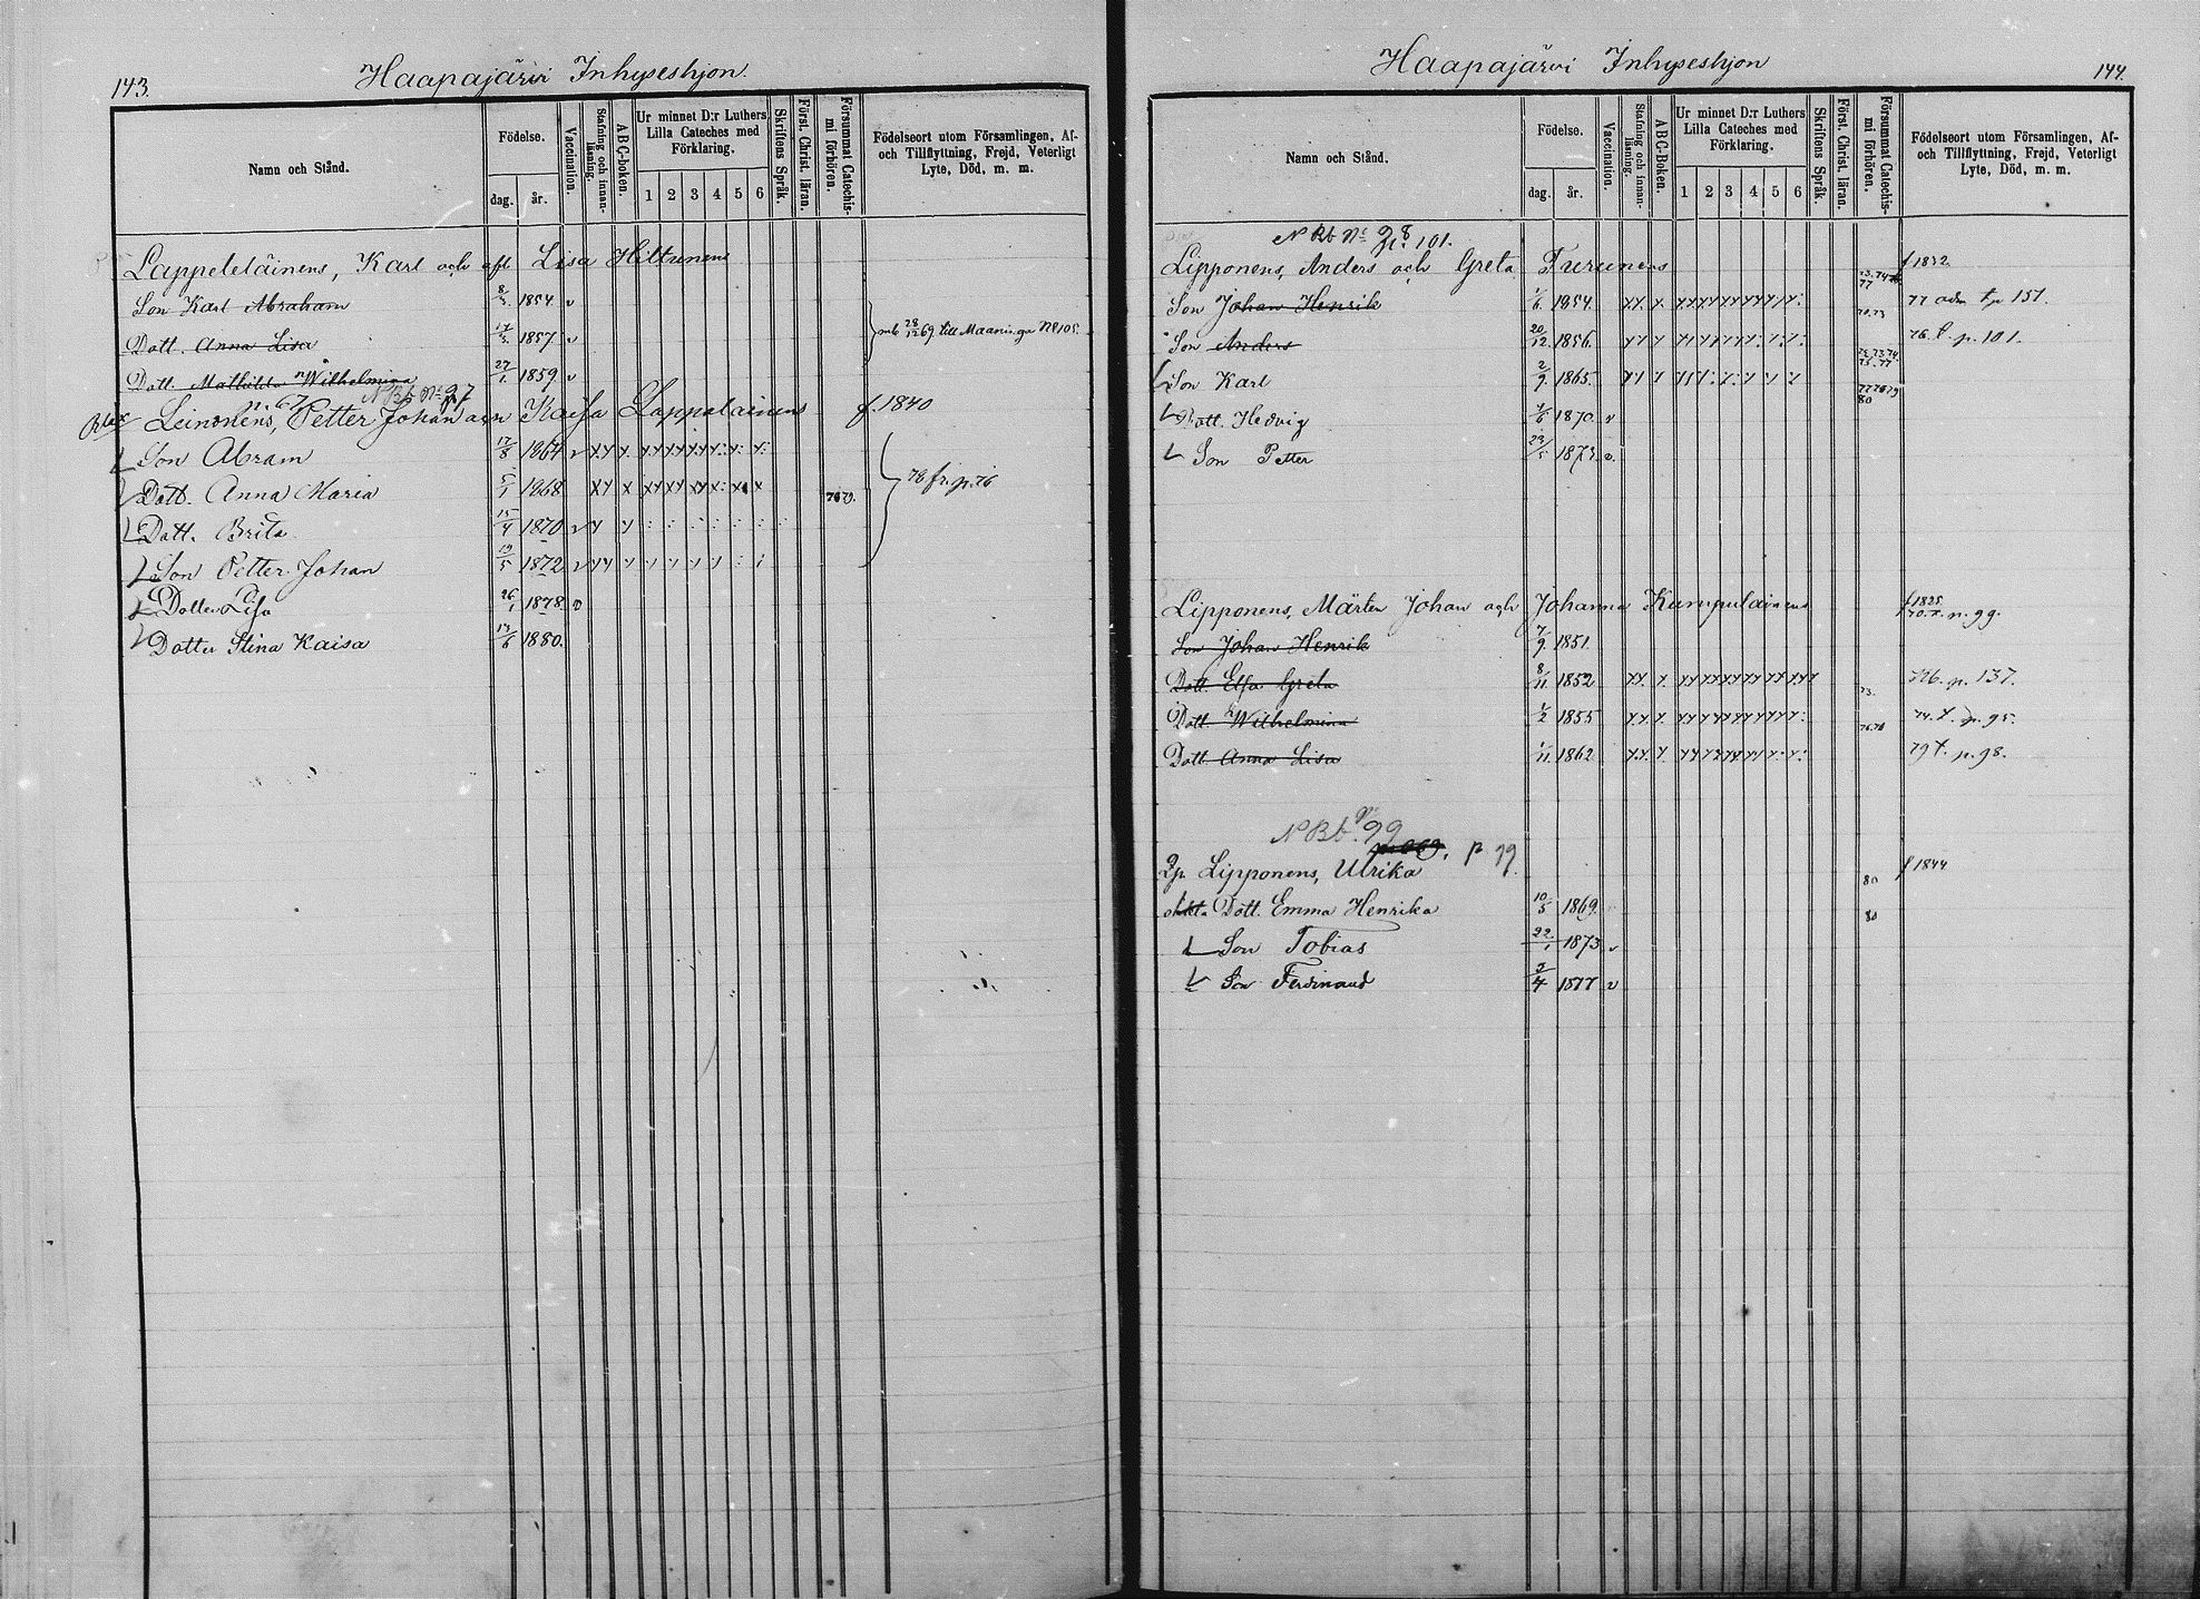 143.
Haapajärvi Inhyseshjon.
Namn och Stånd.
Födelse.
dag.
år.
Vaccination.
Stafning och innan-
läsning.
ABC-boken.
Ur minnet D:r Luthers
Lilla Cateches med
Förklaring.
1 2 3 4 5 6
Skriftens Språk.
Först. Christ. läran.
Försummat Catechis-
mi förhören.
Födelseort utom Församlingen, Af-
och Tillflyttning, Frejd, Veterligt
Lyte, Död, m. m.
Lappeteläinens, Karl och afl Lisa Hiltunens
Son Karl Abraham 8/3 1854 v
Dott. Anna Lisa 1857 v mb 28/12 69 till Maaninga No 105.
Dott. Mathilda Wilhelmina 27/1 1859 v
N Bb No 97
Leinonens, Petter Johan och Kaisa Lappalainens f. 1840
Son Abram 17/8 1864 v
Dott. Anna Maria 5/1 1868 78 fr. p. 76
Dott. Brita 15/4 1870 v
Son Petter Johan 19/5 1872 v
Dotter Lisa 26/1 1878 v
Dotter Stina Kaisa 13/6 1880.
Haapajärvi Inhyseshjon
144.
Namn och Stånd.
Födelse.
dag.
år.
Vaccination.
Stafning och innan-
läsning.
ABC-Boken.
Ur minnet D:r Luthers
Lilla Cateches med
Förklaring.
1 2 3 4 5 6
Skriftens Språk.
Först. Christ. läran.
Försummat Catechis-
mi förhören.
Födelseort utom Församlingen, Af-
och Tillflyttning, Frejd, Veterligt
Lyte, Död, m. m.
N Bb No 98 p. 101.
Lipponens, Anders och Greta Turunens f 1832
Son Johan Henrik 1/6 1854 77 p 151.
Son Anders 20/12 1856 76 t. p. 101.
Son Karl 2/9 1865
Dott. Hedvig 1/6 1870 v
Son Petter 29/5 1873 v.
Lipponens, Mårten Johan och Johanna Kumpulainens f 1825
Son Johan Henrik 7/9 1851
Dott. Elsa Greta 8/11 1852 p. 137.
Dott. Wilhelmina 1/2 1855 74. t. p. 95.
Dott. Anna Lisa 1/11 1862 79 t. p. 98.
N Bb No 99
p 99
Lipponens, Ulrika 80 f 1844
Dott. Emma Henrika 10/5 1869 80
Son Tobias 22/1 1873 v
Son Ferdinand 3/4 1877 v